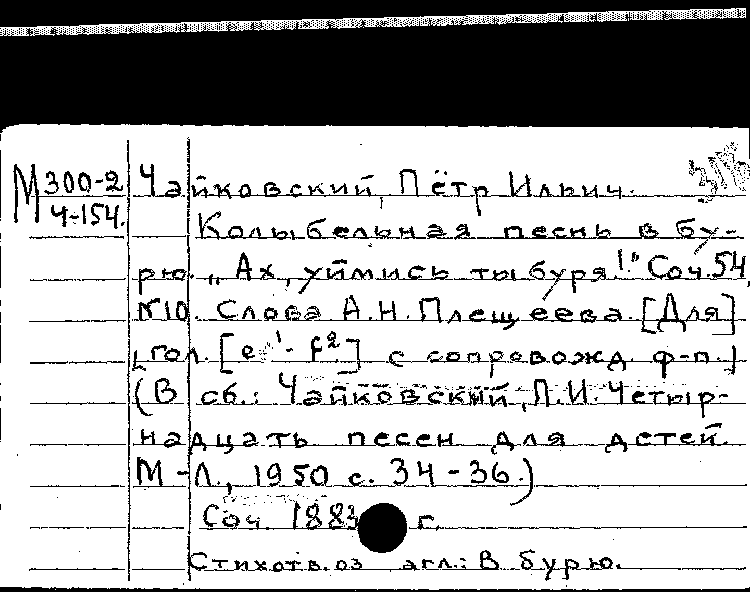 М 300-2 Чайковский, Пётр Ильич.
Ч-154. Колыбельная песнь в бу-
рю. „Ах, уймись ты буря!" Соч. 54,
№10. Слова А.Н. Плещеева. [Для]
[гол. [e¹ - f²] с сопровожд. ф-п.]
(В сб.: Чайковский, П.И. Четыр-
надцать песен для детей.
М-Л., 1950 с. 34-36.)
Соч. 1883 г.
Стихотв. оз агл.: В бурю.